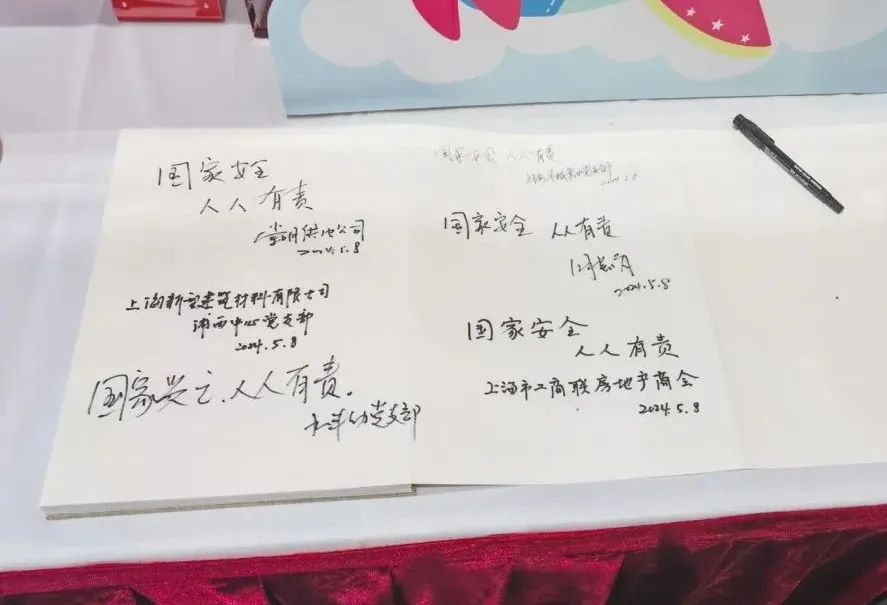 国家安全
人人有责
供电公司
2024.5.8
上海新型建筑材料有限公司
浦西中心党支部
2024.5.8
国家兴亡、人人有责。
幼党支部
国家安全 人人有责
国家安全 人人有责
2024.5.8
国家安全
人人有责
上海市工商联房地产商会
2024.5.8